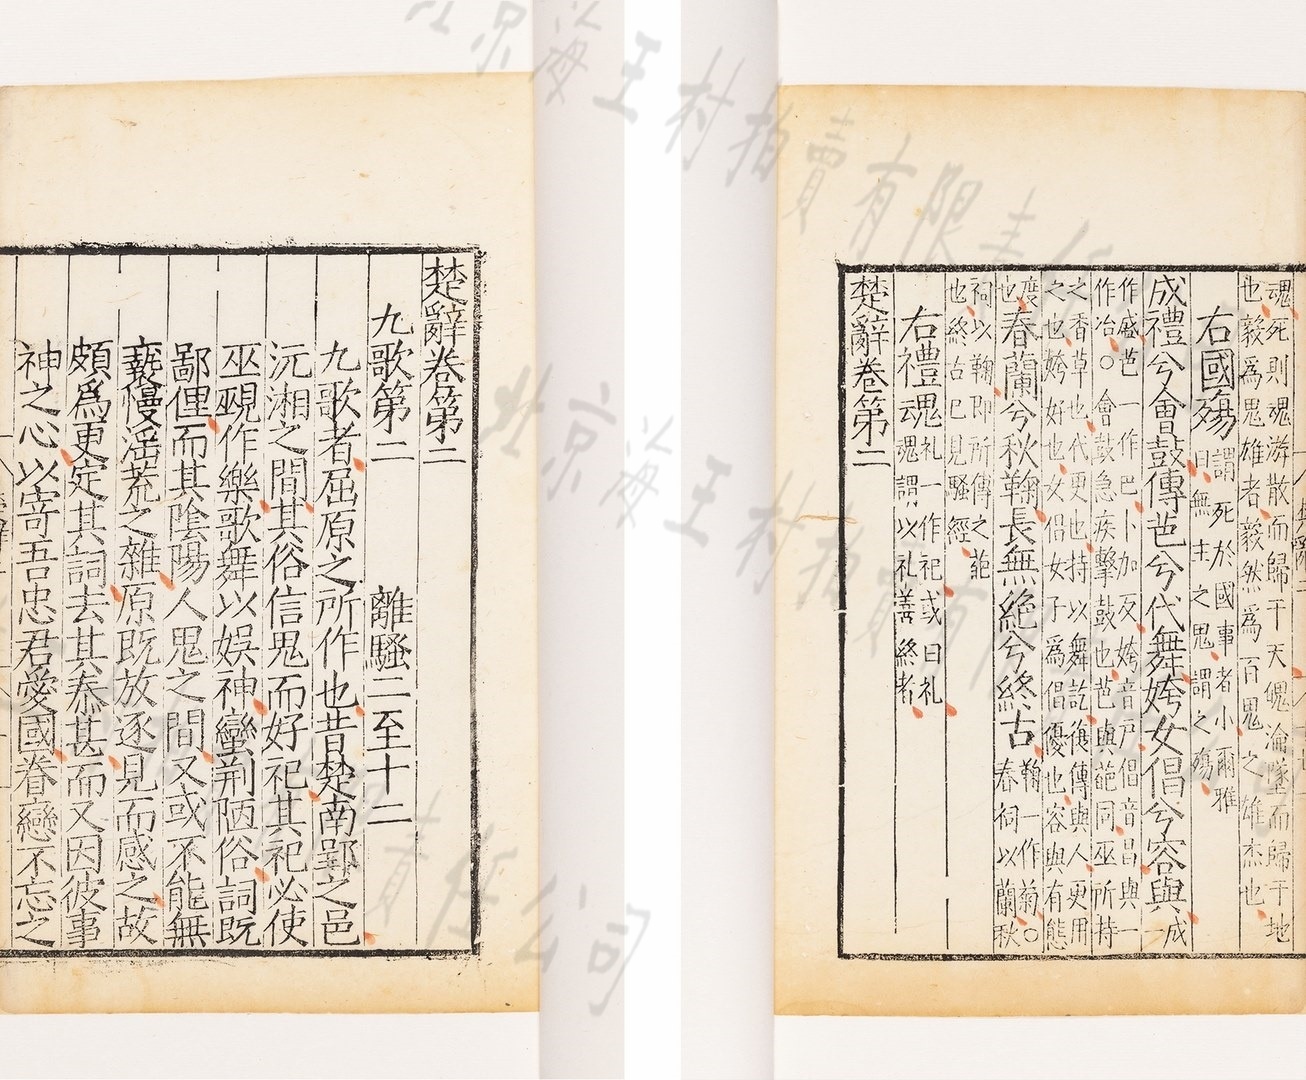 楚辭卷第二
九歌第二　離騷二至十二
九歌者屈原之所作也昔楚南郢之邑
沅湘之間其俗信鬼而好祀其祀必使
巫覡作樂歌舞以娯神蠻荆陋俗詞既
鄙俚而其陰陽人鬼之間又或不能無
褻慢淫荒之雜原既放逐見而感之故
頗爲更定其詞去其泰甚而又因彼事
神之心以寄吾忠君愛國眷戀不忘之
魂死則魂游散而歸于天魄淪墜而歸于地
也毅爲鬼雄者毅然爲百鬼之雄杰也
右國殤 謂死於國事者小爾雅
曰無主之鬼謂之殤
成禮兮會鼓傳芭兮代舞姱女倡兮容與 成一
作盛芭一作巴卜加反姱音戸倡音昌與一
作冶○會鼓急疾擊鼓也芭與葩同巫所持
之香草也代更也持以舞訖復傳與人更用
之也姱好也女倡女子爲倡優也容與有態
度
也 春蘭兮秋鞠長無絶兮終古 鞠一作菊○
春祠以蘭秋
祠以鞠即所傳之葩
也終古已見騷經
右禮魂 礼一作祀或曰礼
魂謂以礼善終者
楚辭卷第二
北京海王村拍賣有限責任公司
北京海王村拍賣有限責任公司